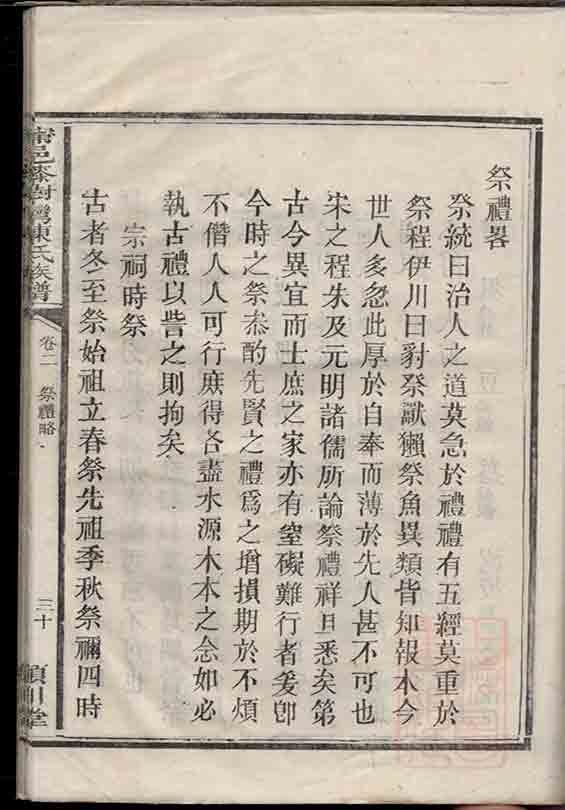 祭禮畧
祭統曰治人之道莫急於禮禮有五經莫重於
祭程伊川曰豺祭獸獺祭魚異類皆知報本今
世人多忽此厚於自奉而薄於先人甚不可也
宋之程朱及元明諸儒所論祭禮祥且悉矣第
古今異宜而士庶之家亦有窒礙難行者爰卽
今時之祭叅酌先賢之禮爲之增損期於不煩
不僭人人可行庶得各盡水源木本之念如必
執古禮以訾之則拘矣
宗祠時祭
古者冬至祭始祖立春祭先祖季秋祭禰四時
邑漆樹灣陳氏族譜
卷二 祭禮略
三十
潁川堂